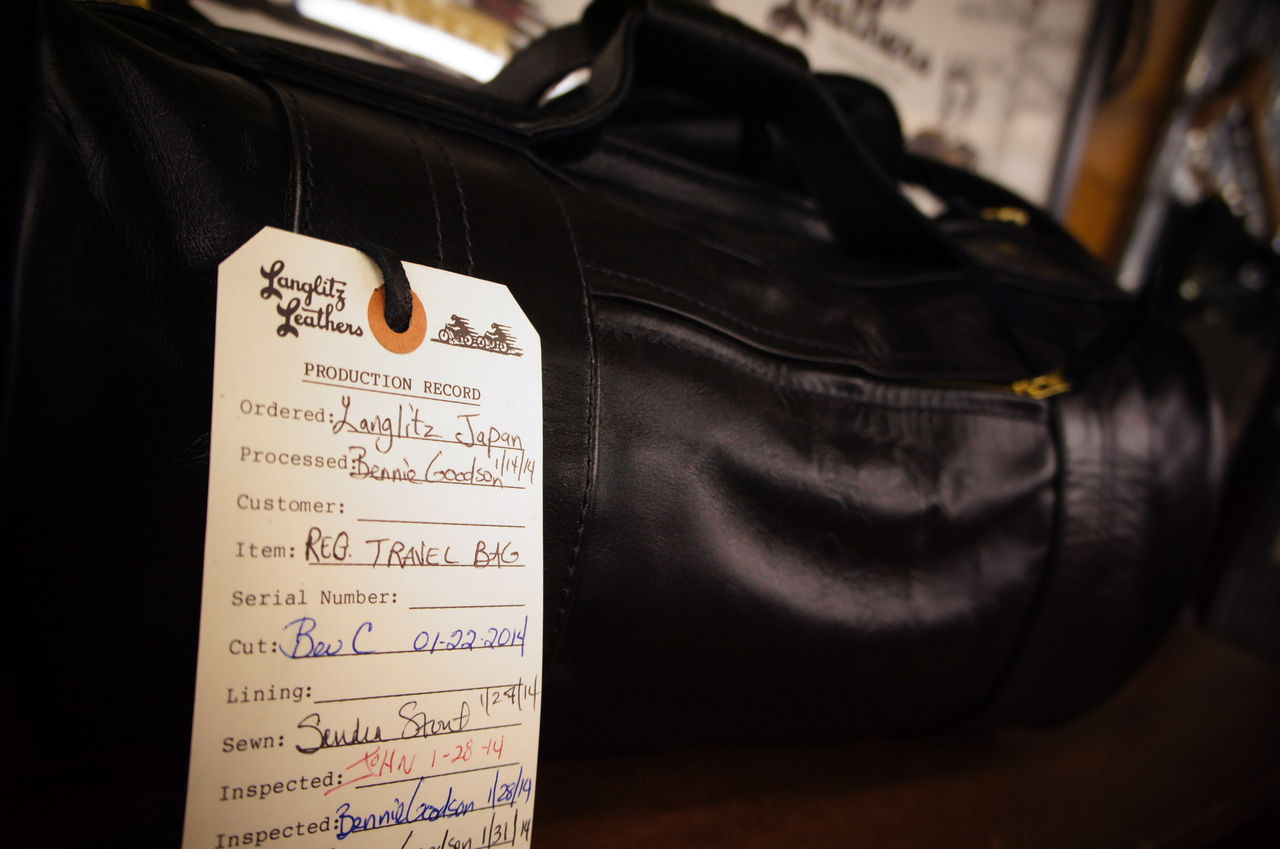 Langlitz
Leathers
PRODUCTION RECORD
Ordered: Langlitz Japan
Processed: Bennie Goodson 1/14/14
Customer:
Item: REG. TRAVEL BAG
Serial Number:
Cut: Bev C 01-22-2014
Lining:
Sewn: Sendra Stout 1/27/14
Inspected: JOHN 1-28-14
Inspected: Bennie Goodson 1/28/14
Goodson 1/31/14
Leathers